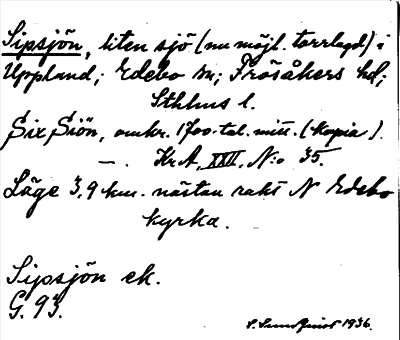 Sipsjön, liten sjö (nu möjl. torrlagd) i
Uppland; Edebo sn; Frösåkers hd;
Sthlms l.
Six Siön, omkr. 1700-tal. mitt. (kopia).
—. Kr. A. XXII, N:o 35.
Läge 3,9 km. nästan rakt N Edebo
kyrka.
Sipsjön ek.
G. 93.
S. Sundquist 1936.